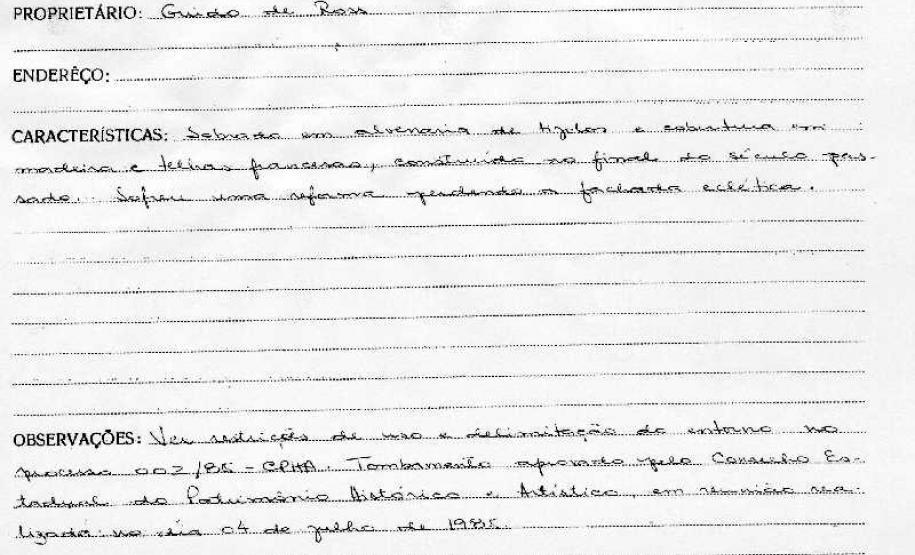 PROPRIETÁRIO: Guido de Ross
ENDERÊÇO:
CARACTERÍSTICAS: Sobrado em alvenaria de tijolos e cobertura em
madeira e telhas francesas, construído no final do século pas-
sado. Sofreu uma reforma perdendo a fachada eclética.
OBSERVAÇÕES: Ver restrições de uso e delimitação do entorno no
processo 002/85 - CPHA. Tombamento aprovado pelo Conselho Es-
tadual do Patrimônio Histórico e Artístico, em reunião rea-
lizada no dia 04 de julho de 1985.